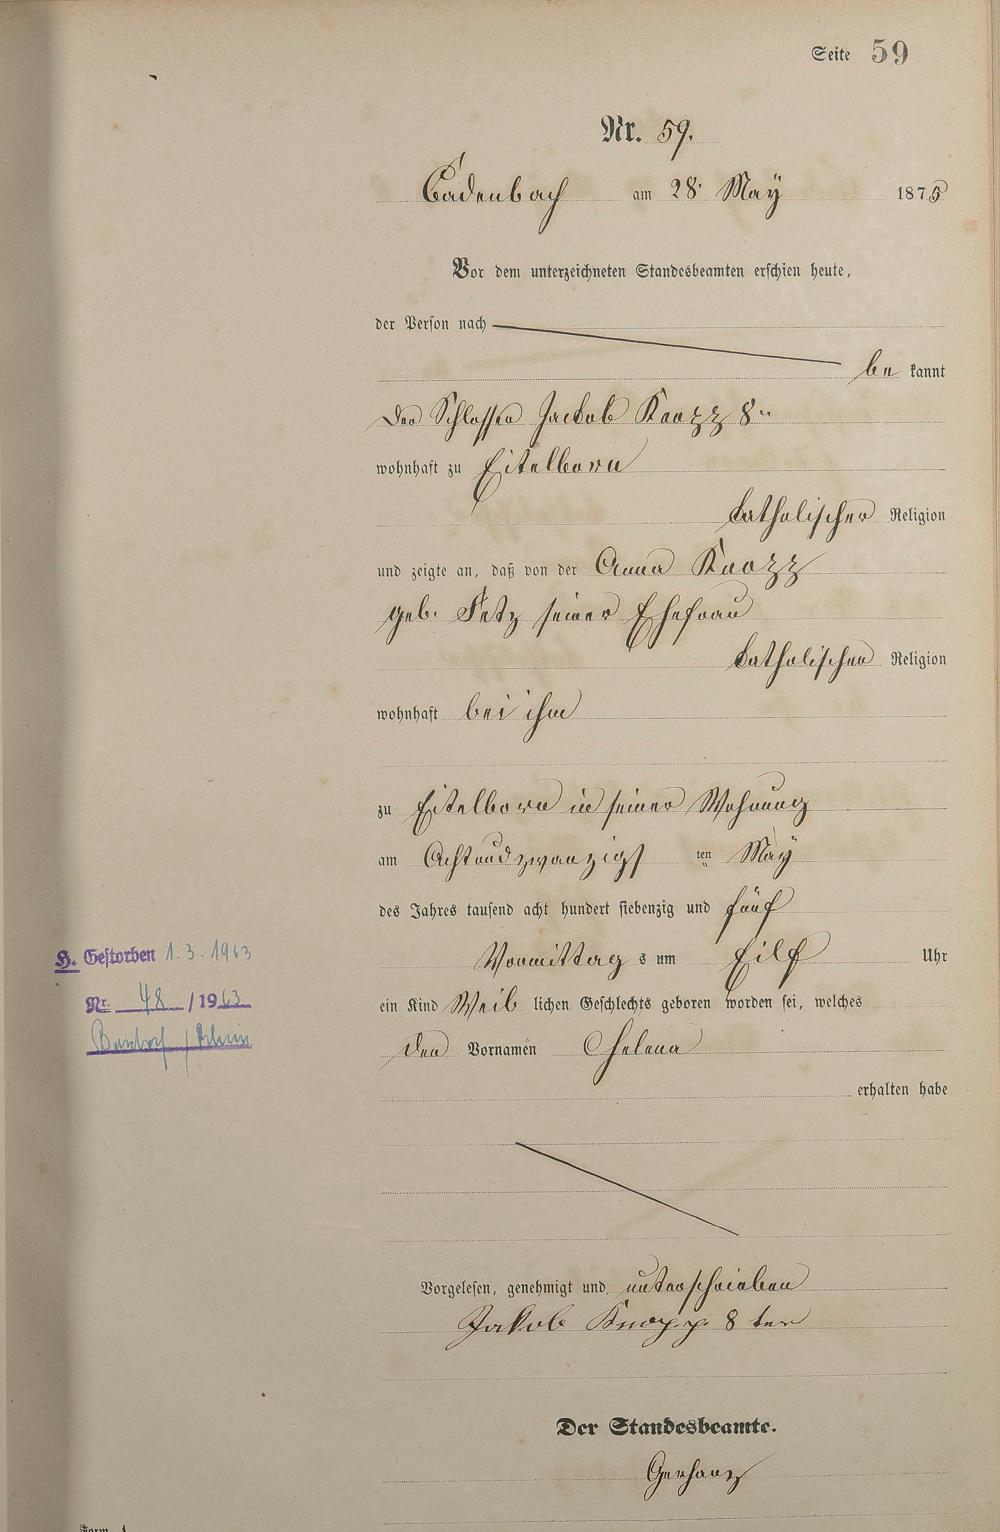 Seite 59
Nr. 59.
Cadenbach am 28. Maÿ 1875
Vor dem unterzeichneten Standesbeamten erschien heute,
der Person nach
be kannt
der Schlosser Jackob Knopp 8.
wohnhaft zu Eitelborn
katholischer Religion
und zeigte an, daß von der Anna Knopp
geb. Fetz seiner Ehefrau
katholischer Religion
wohnhaft bei ihm
zu Eitelborn in seiner Wohnung
am Achtundzwanzigs ten Maÿ
des Jahres tausend acht hundert siebenzig und fünf
Vormittag s um Eilf Uhr
ein Kind Weib lichen Geschlechts geboren worden sei, welches
den Vornamen Helena
erhalten habe
H. Gestorben 1.3.1963
Nr. 48 /1963
Vorgelesen, genehmigt und unterschrieben
Jakob Knopp 8 ter
Der Standesbeamte.
Gerharz
Form. A